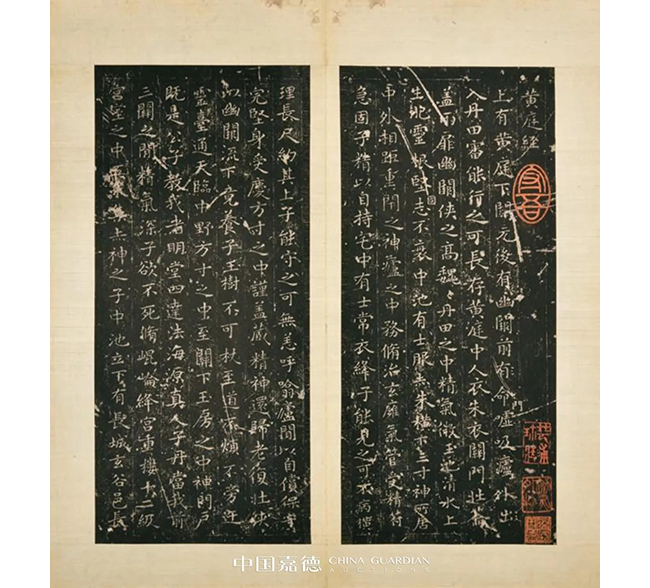 黃庭經
上有黃庭下關元後有幽闕前有命廬吸廬外出
入丹田審能行之可長存黃庭中人衣朱衣關門壯籥
蓋兩扉幽闕俠之高魏〻丹田之中精氣微玉池清水上
生肥靈根堅志不衰中池有士服赤朱橫下三寸神所居
中外相距重閇之神廬之中務脩治玄膺氣管受精符
急固子精以自持宅中有士常衣絳子能見之可不病橫
理長尺約其上子能守之可無恙呼噏廬間以自償保守
完堅身受慶方寸之中謹蓋藏精神還歸老復壯俠
以幽闕流下竟養子玉樹不可杖至道不煩不旁迕
靈臺通天臨中野方寸之中至關下玉房之中神門戶
既是公子教我者明堂四達法海源真人子丹當我前
三關之間精氣深子欲不死脩崐崘絳宮重樓十二級
宮室之中五采集赤神之子中池立下有長城玄谷邑長
中国嘉德 CHINA GUARDIAN
AUCTIONS